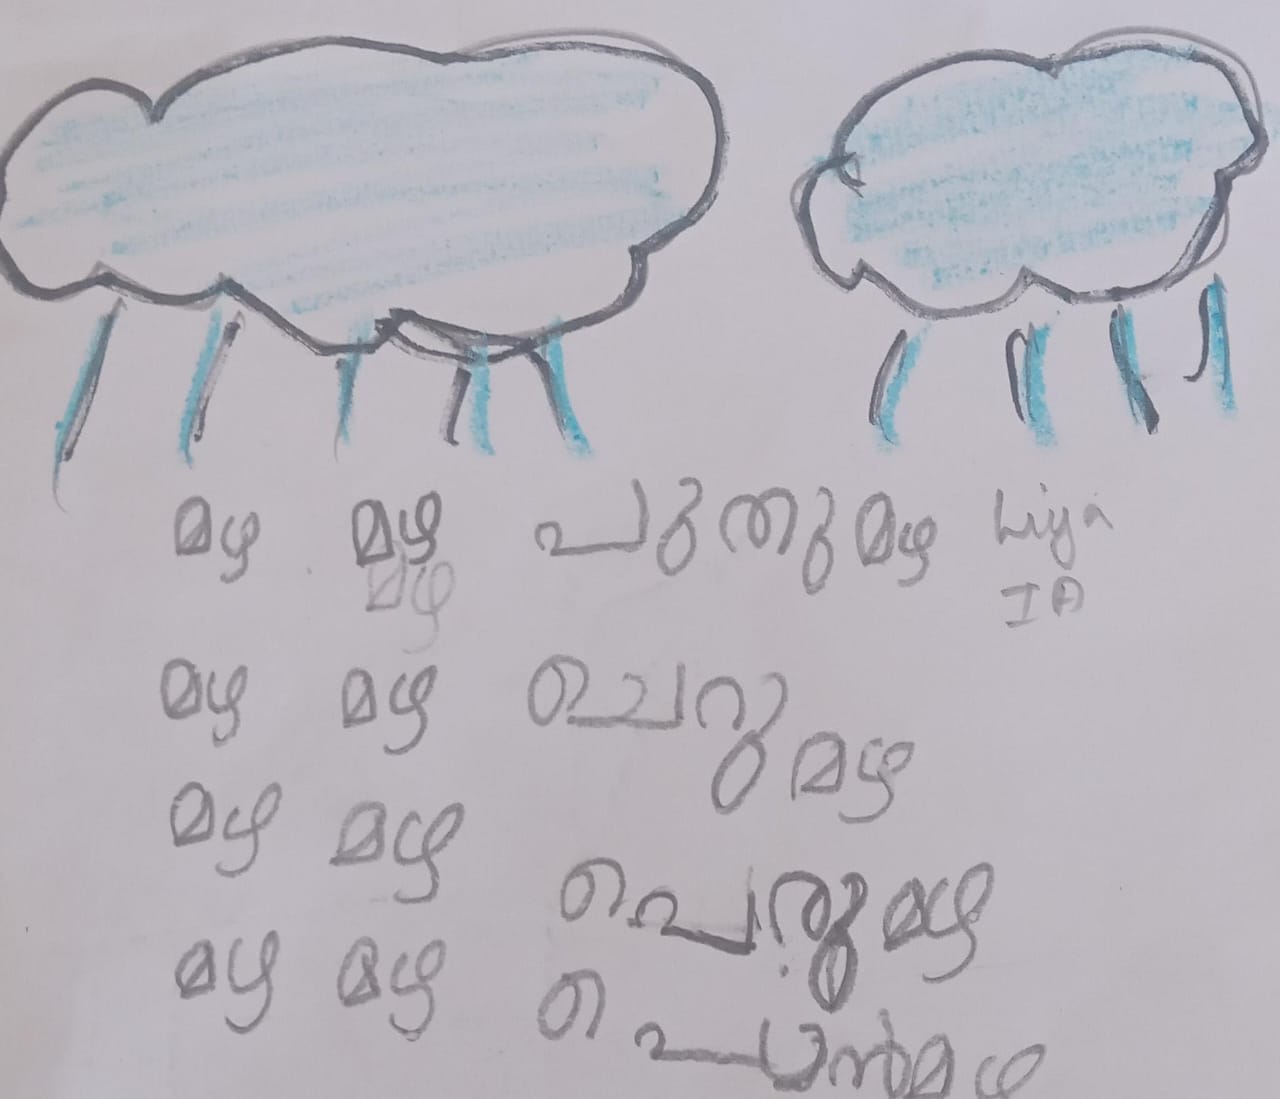 മഴ മഴ പുതുമഴ Liya
മഴ I A
മഴ മഴ ചെറുമഴ
മഴ മഴ പെരുമഴ
മഴ മഴ പൊൻമഴ